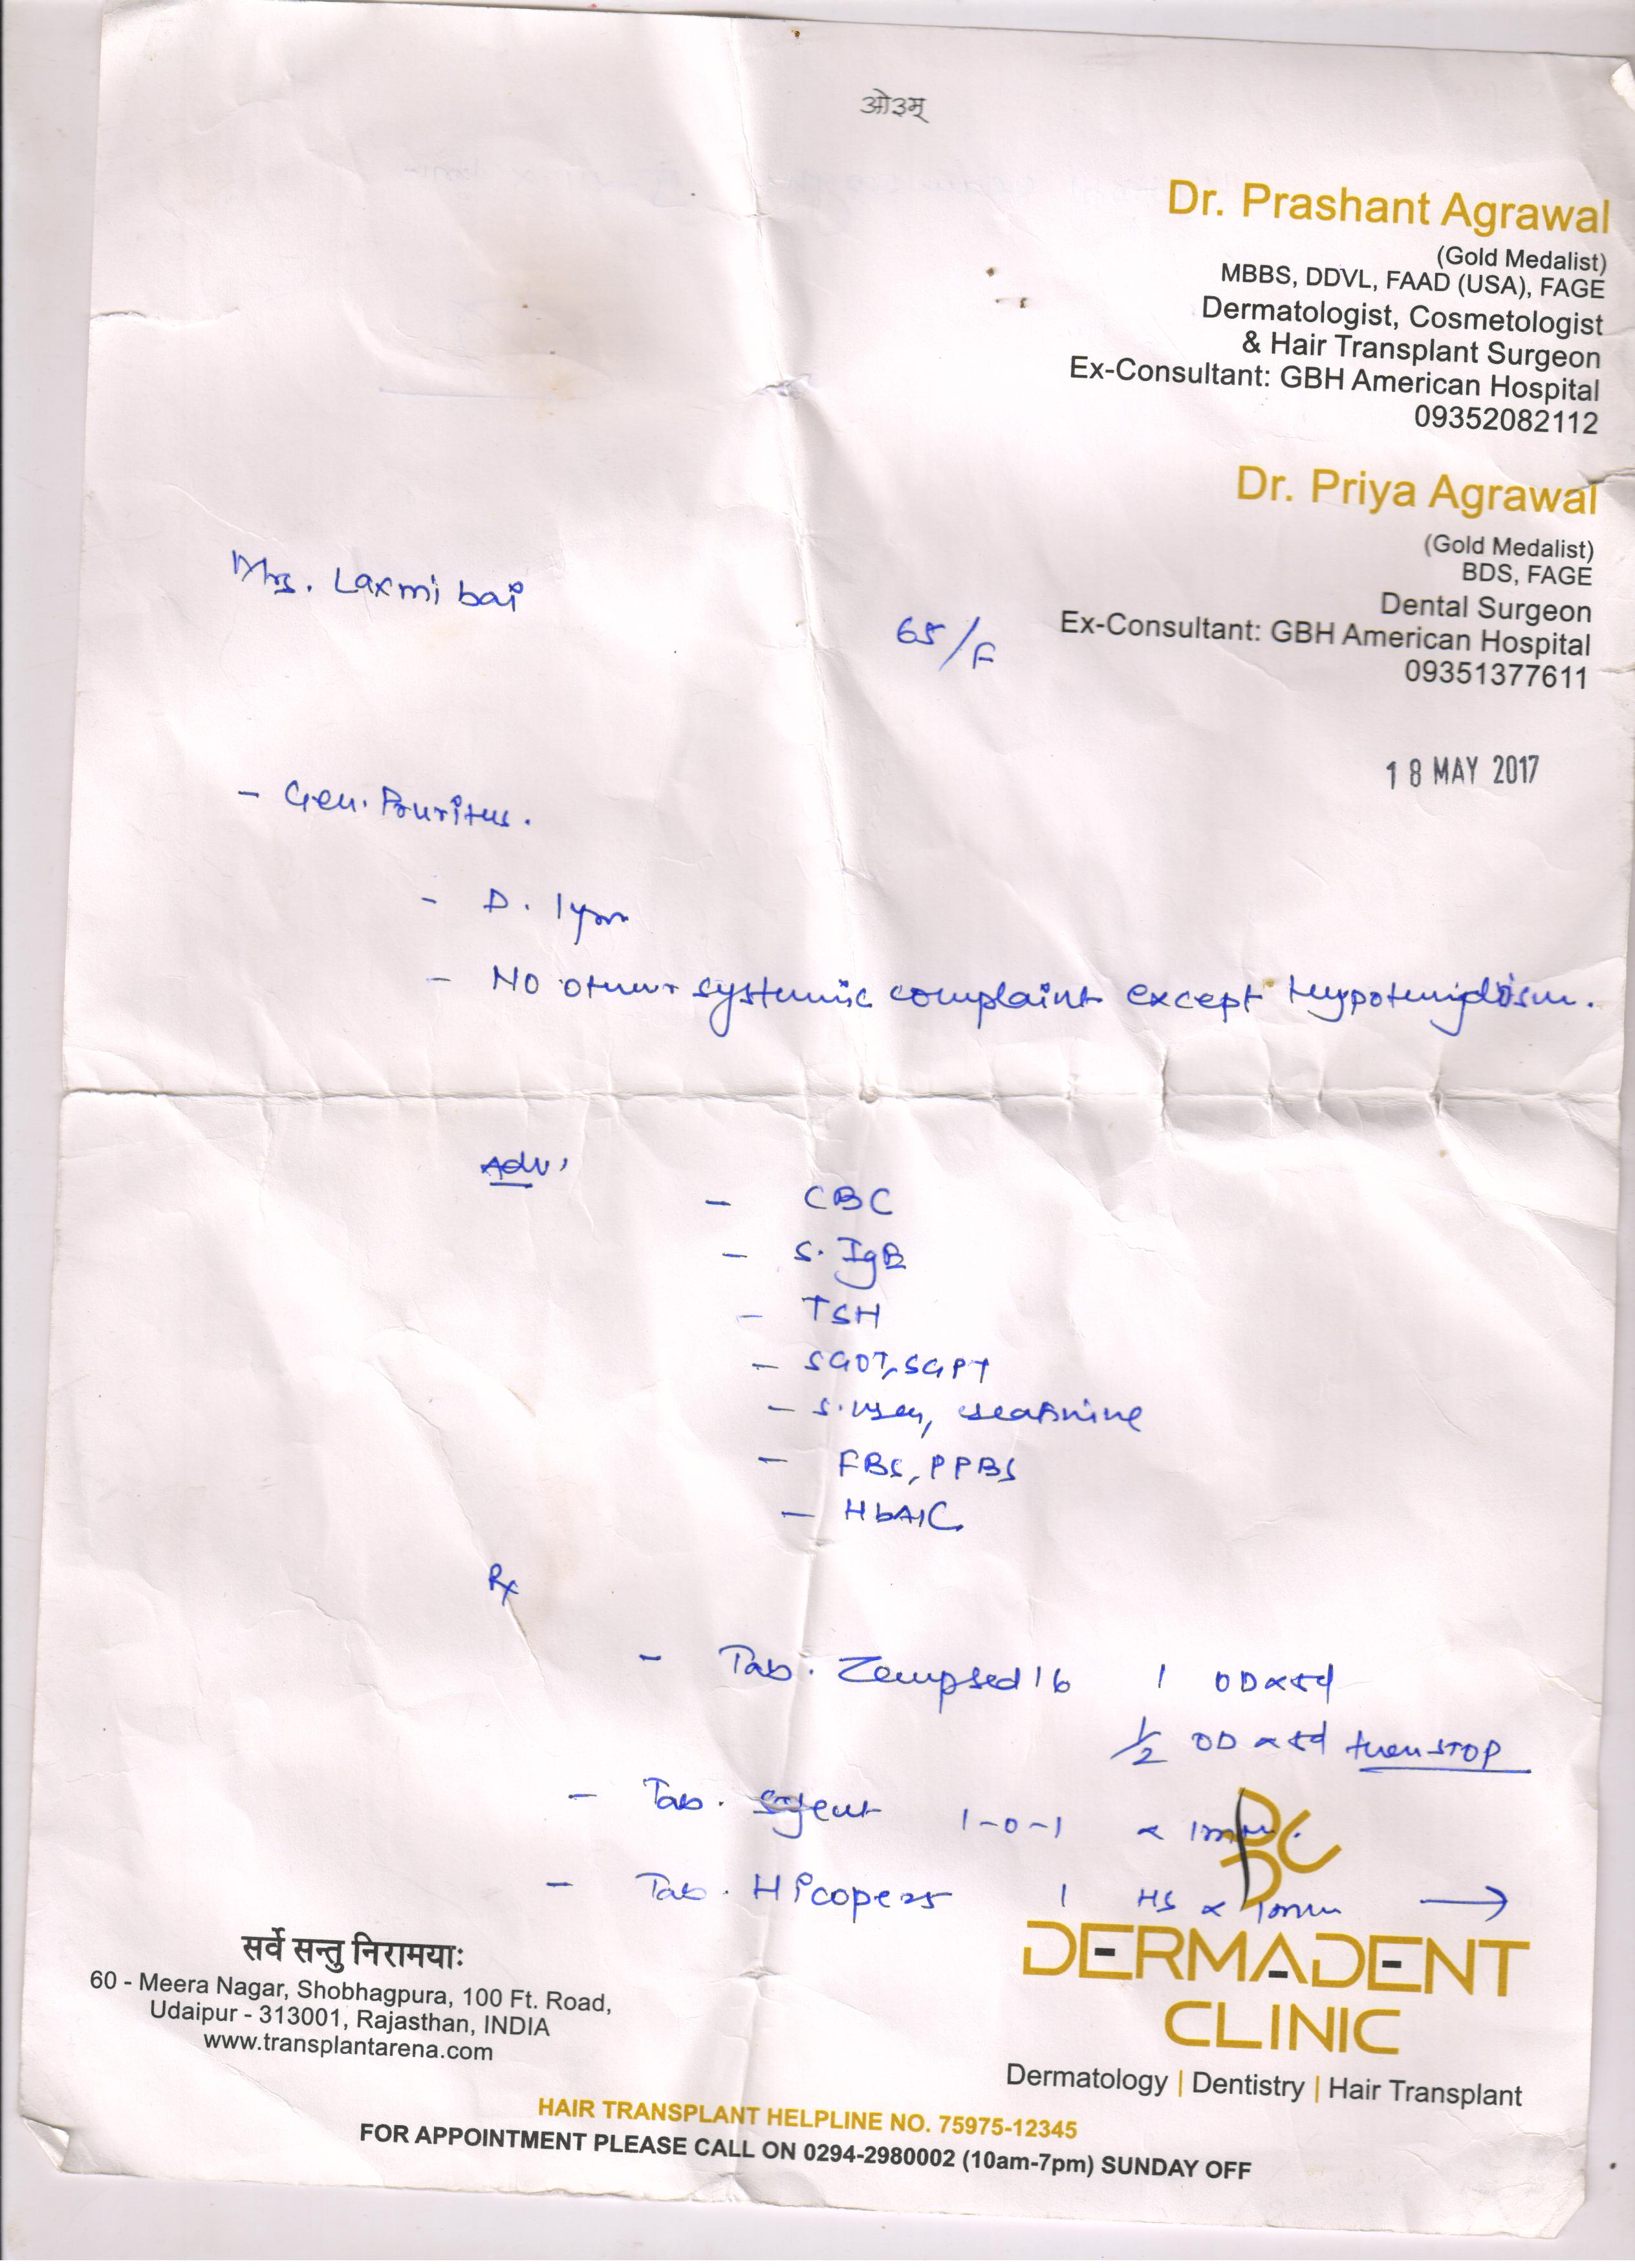 ओ३म्
Dr. Prashant Agrawal
(Gold Medalist)
MBBS, DDVL, FAAD (USA), FAGE
Dermatologist, Cosmetologist
& Hair Transplant Surgeon
Ex-Consultant: GBH American Hospital
09352082112
Dr. Priya Agrawal
(Gold Medalist)
BDS, FAGE
Dental Surgeon
Ex-Consultant: GBH American Hospital
09351377611
Mrs. Laxmi bai
65/F
18 MAY 2017
- Gen. Pruritus.
- D. 1 year
- No other systemic complaint except hypothyroidism.
Adv.
- CBC
- S. IgE
- TSH
- SGOT, SGPT
- S. urea, creatinine
- FBS, PPBS
- HbA1C
Rx
- Tab. Zempred 16 1 OD x 5d
1/2 OD x 5d then STOP
- Tab. 1-0-1 x 1 mon.
- Tab. Hicope 25 1 HS x 1 mon →
DCD
DERMADENT
CLINIC
Dermatology | Dentistry | Hair Transplant
सर्वे सन्तु निरामयाः
60 - Meera Nagar, Shobhagpura, 100 Ft. Road,
Udaipur - 313001, Rajasthan, INDIA
www.transplantarena.com
HAIR TRANSPLANT HELPLINE NO. 75975-12345
FOR APPOINTMENT PLEASE CALL ON 0294-2980002 (10am-7pm) SUNDAY OFF